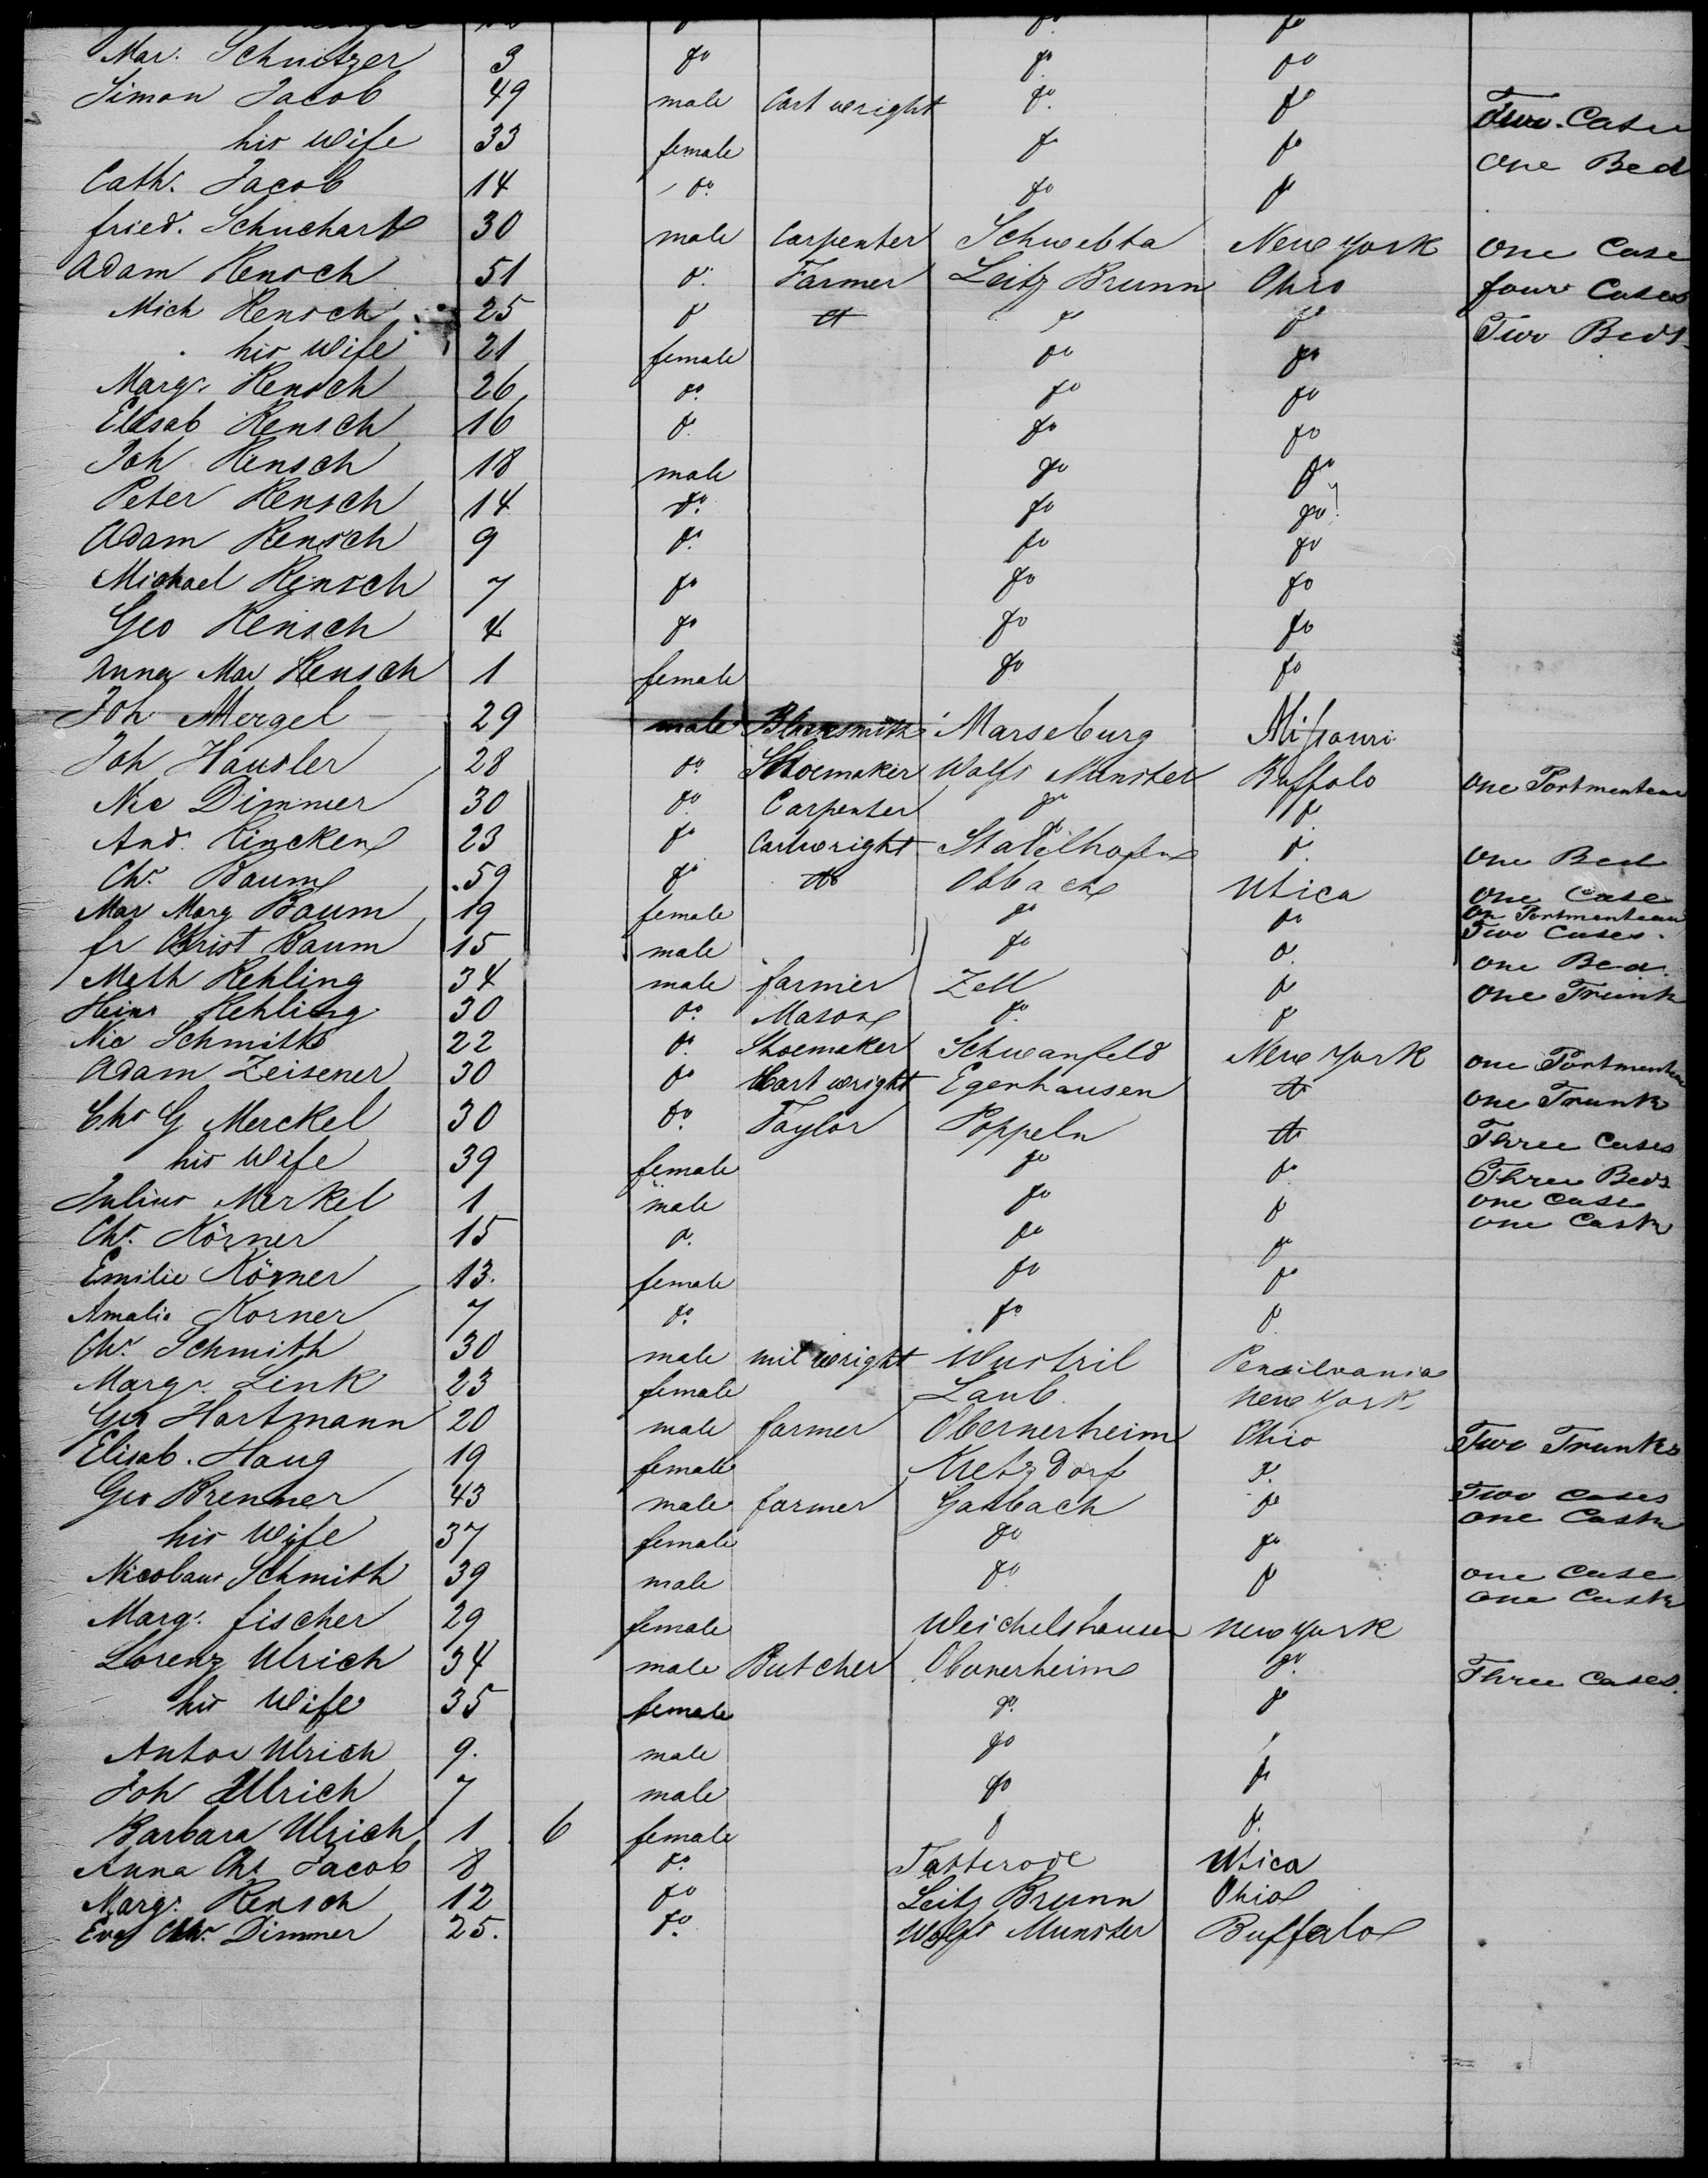 Mar. Schnitzer 3 do do do
Simon Jacob 49 male Cartwright do. do Two Case
his wife 33 female do do One Bed
Cath. Jacob 14 do. do do
fried. Schuchart 30 male Carpenter Schwebta New York One Case
Adam Rensch 51 do. Farmer Leitz Brunn Ohio four Cases
Mich Rensch 25 do do do do Two Beds
his wife 21 female do do
Margr. Rensch 26 do. do do
Elisab Rensch 16 do. do do
Joh Rensch 18 male do do
Peter Rensch 14 do. do do
Adam Rensch 9 do. do do
Michael Rensch 7 do do do
Geo Rensch 4 do do do
Anna Mar Rensch 1 female do do
Joh Mergel 29 male Blacksmith Marseburg Missouri
Joh Hausler 28 do. Shoemaker Wolfs Munster Buffalo One Portmenteau
Nic Dimmer 30 do. Carpenter do do
And. Rincken 23 do Cartwright Statelhofen do. One Bed
Chr. Baum 59 do do Obbach Utica One Case
Mar Marg Baum 19 female do do On Portmenteau
fr Christ Baum 15 male do do. Two Cases.
Math Kehling 34 male farmer Zell do One Bed.
Heinr Kehling 30 do. Mason do. do One Trunk
Nic Schmitt 22 do. Shoemaker Schwanfeld New York One Portmenteau
Adam Zeisener 30 do Cartwright Egenhausen do One Trunk
Chr G Merckel 30 do. Taylor Poppeln do Three Cases
his wife 39 female do do. Three Beds
Julius Merkel 1 male do do One Case
Chr. Körner 15 do. do do One Cask
Emilie Körner 13. female do do
Amalie Korner 7 do. do. do.
Chr. Schmith 30 male milwright Wustril Pensilvania
Margr. Link 23 female Laub New York
Geo Hartmann 20 male farmer Obernerheim Ohio Two Trunks
Elisab. Haug 19 female Metzdorf do.
Geo Brenner 43 male farmer Gambach do Two Cases
his wife 37 female do do One Cask
Nicolaus Schmith 39 male do. do One Case
One Cask
Margr. fischer 29 female Weichelshausen New York
Lorenz Ulrich 34 male Butcher Obernerheim do. Three Cases.
his wife 35 female do. do
Anton Ulrich 9. male do
Joh Ulrich 7 male do do
Barbara Ulrich 1 6 female do do.
Anna Chr Jacob 8 do. Tatterode Utica
Margr. Rensch 12 do Leitz Brunn Ohio
Eva Chr. Dimmer 25. do. Wolfs Munster Buffalo